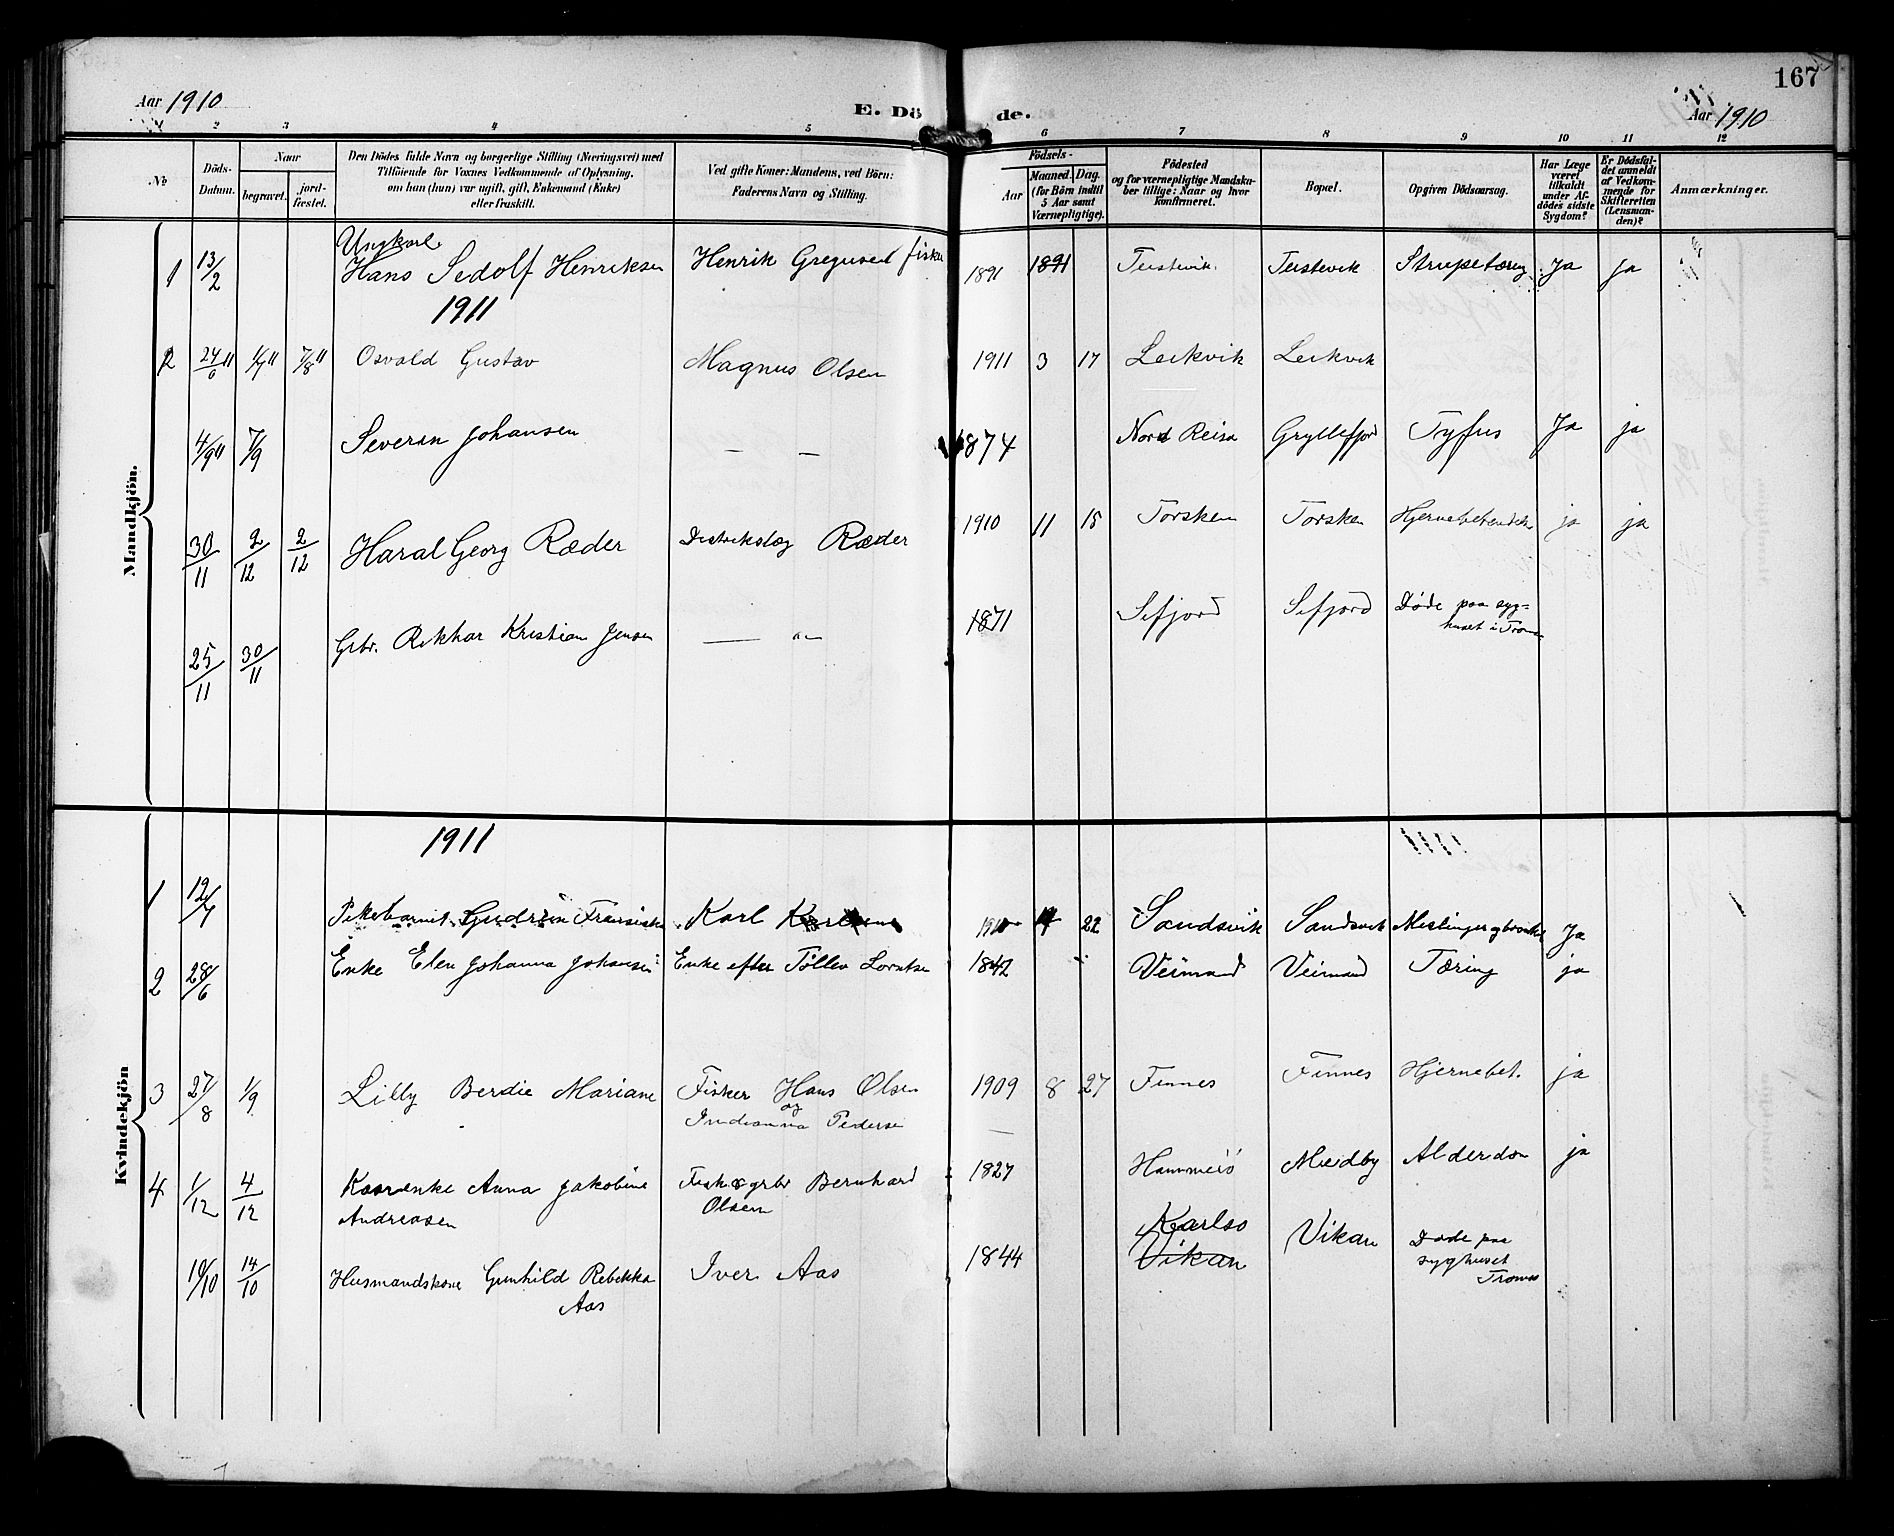 167
Aar 1910
E. Döde.
Aar 1910
2 3 4 5 6 7 8 9 10 11 12
No
Döds-Datum.
Naar
begravet.
jord-fæstet.
Den Dödes fulde Navn og borgerlige Stilling (Næringsvei) med
Tilföiende for Voxnes Vedkommende af Oplysning.
om han (hun) var ugift, gift, Enkemand (Enke)
eller fraskilt.
Ved gifte Koner: Mandens, ved Börn:
Faderens Navn og Stilling.
Födsels-
Aar
Maaned. Dag.
(for Börn indtil
5 Aar samt
Værnepligtige).
Födested
og for værnepligtige Mandska-
ber tillige: Naar og hvor
konfirmeret.
Bopæl.
Opgiven Dödsaarsag.
Har Læge
været
tilkaldt
under Af-
dödes sidste
Sygdom?
Er Dödsfal-
det anmeldt
af Vedkom-
mende for
Skifteretten
(Lensman-
den)?
Anmærkninger.
Mandkjön.
Ungkarl.
1 13/2 Hans Sedolf Henriksen Henrik Gregusen fisker 1891 1891 Teistevik Teistevik Strupetæring Ja ja
1911
2 24/6 11 1/7 11 7/8 11 Osvald Gustav Magnus Olsen 1911 3 17 Leikvik Leikvik
4/9 11 7/9 Severin Johansen — — 1874 Nord Reisa Gryllefjord Tyfus Ja ja
30/11 2/12 2/12 Haral Georg Ræder Distriktslæg Ræder 1910 11 15 Torsken Torsken ja ja
25/11 30/11 Gbr. Rikhar Kristian Jensen — 1871 Sifjord Sifjord Døde paa syg=
huset i Troms
Kvindekjön
1911
1 12/7 Pikebarnet Gudrun Fransiska Karl 22 Sandsvik Sandsvik Meslinger og Ja
2 28/6 Enke Elen Johanna Johansen Enke efter Tollev Lorntsen 1842 Veimand Veimand Tæring ja
3 27/8 1/9 Lilly Berdie Mariane Fisker Hans Olsen 1909 8 27 Finnes Finnes Hjernebet. ja
og
Indianna Pederse
4 1/12 4/12 Kaarenke Anna Jakobine Fisker & grbr Bernhard 1827 Hammerö Medby Alderdom ja
Andreasen Olsen
Karlsö
10/10 14/10 Husmandskone Gunhild Rebekka Iver Aas 1844 Vikan Vikan Døde paa
syghuset
Aas Tromsø